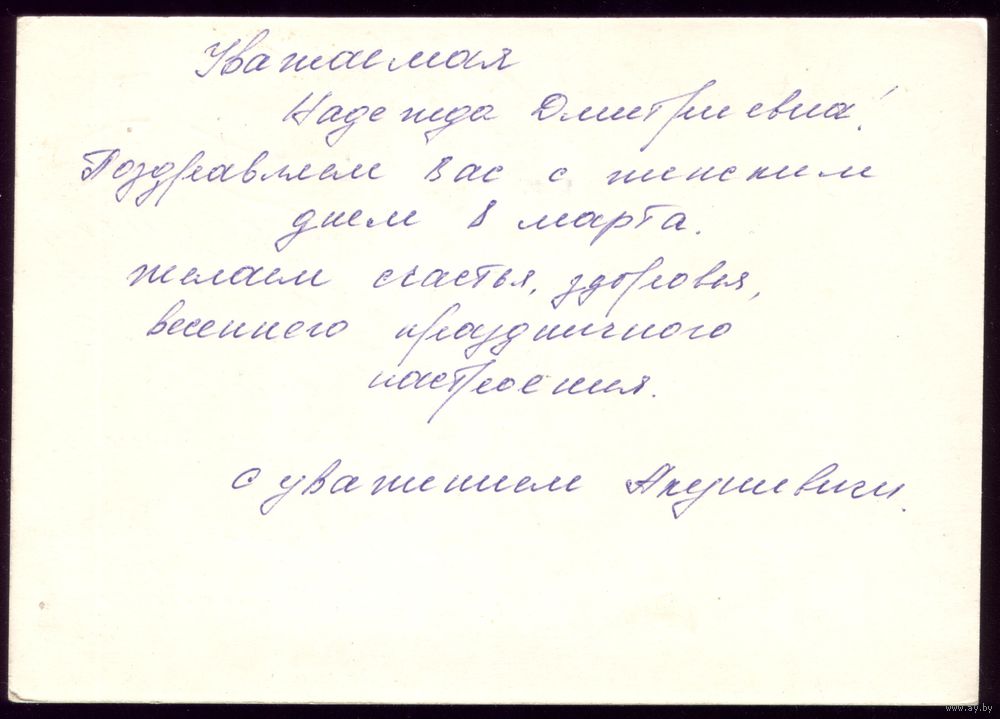 Уважаемая
Надежда Дмитриевна!
Поздравляем Вас с женским
днем 8 марта.
желаем счастья, здоровья,
весеннего праздничного
настроения.
с уважением
www.ay.by